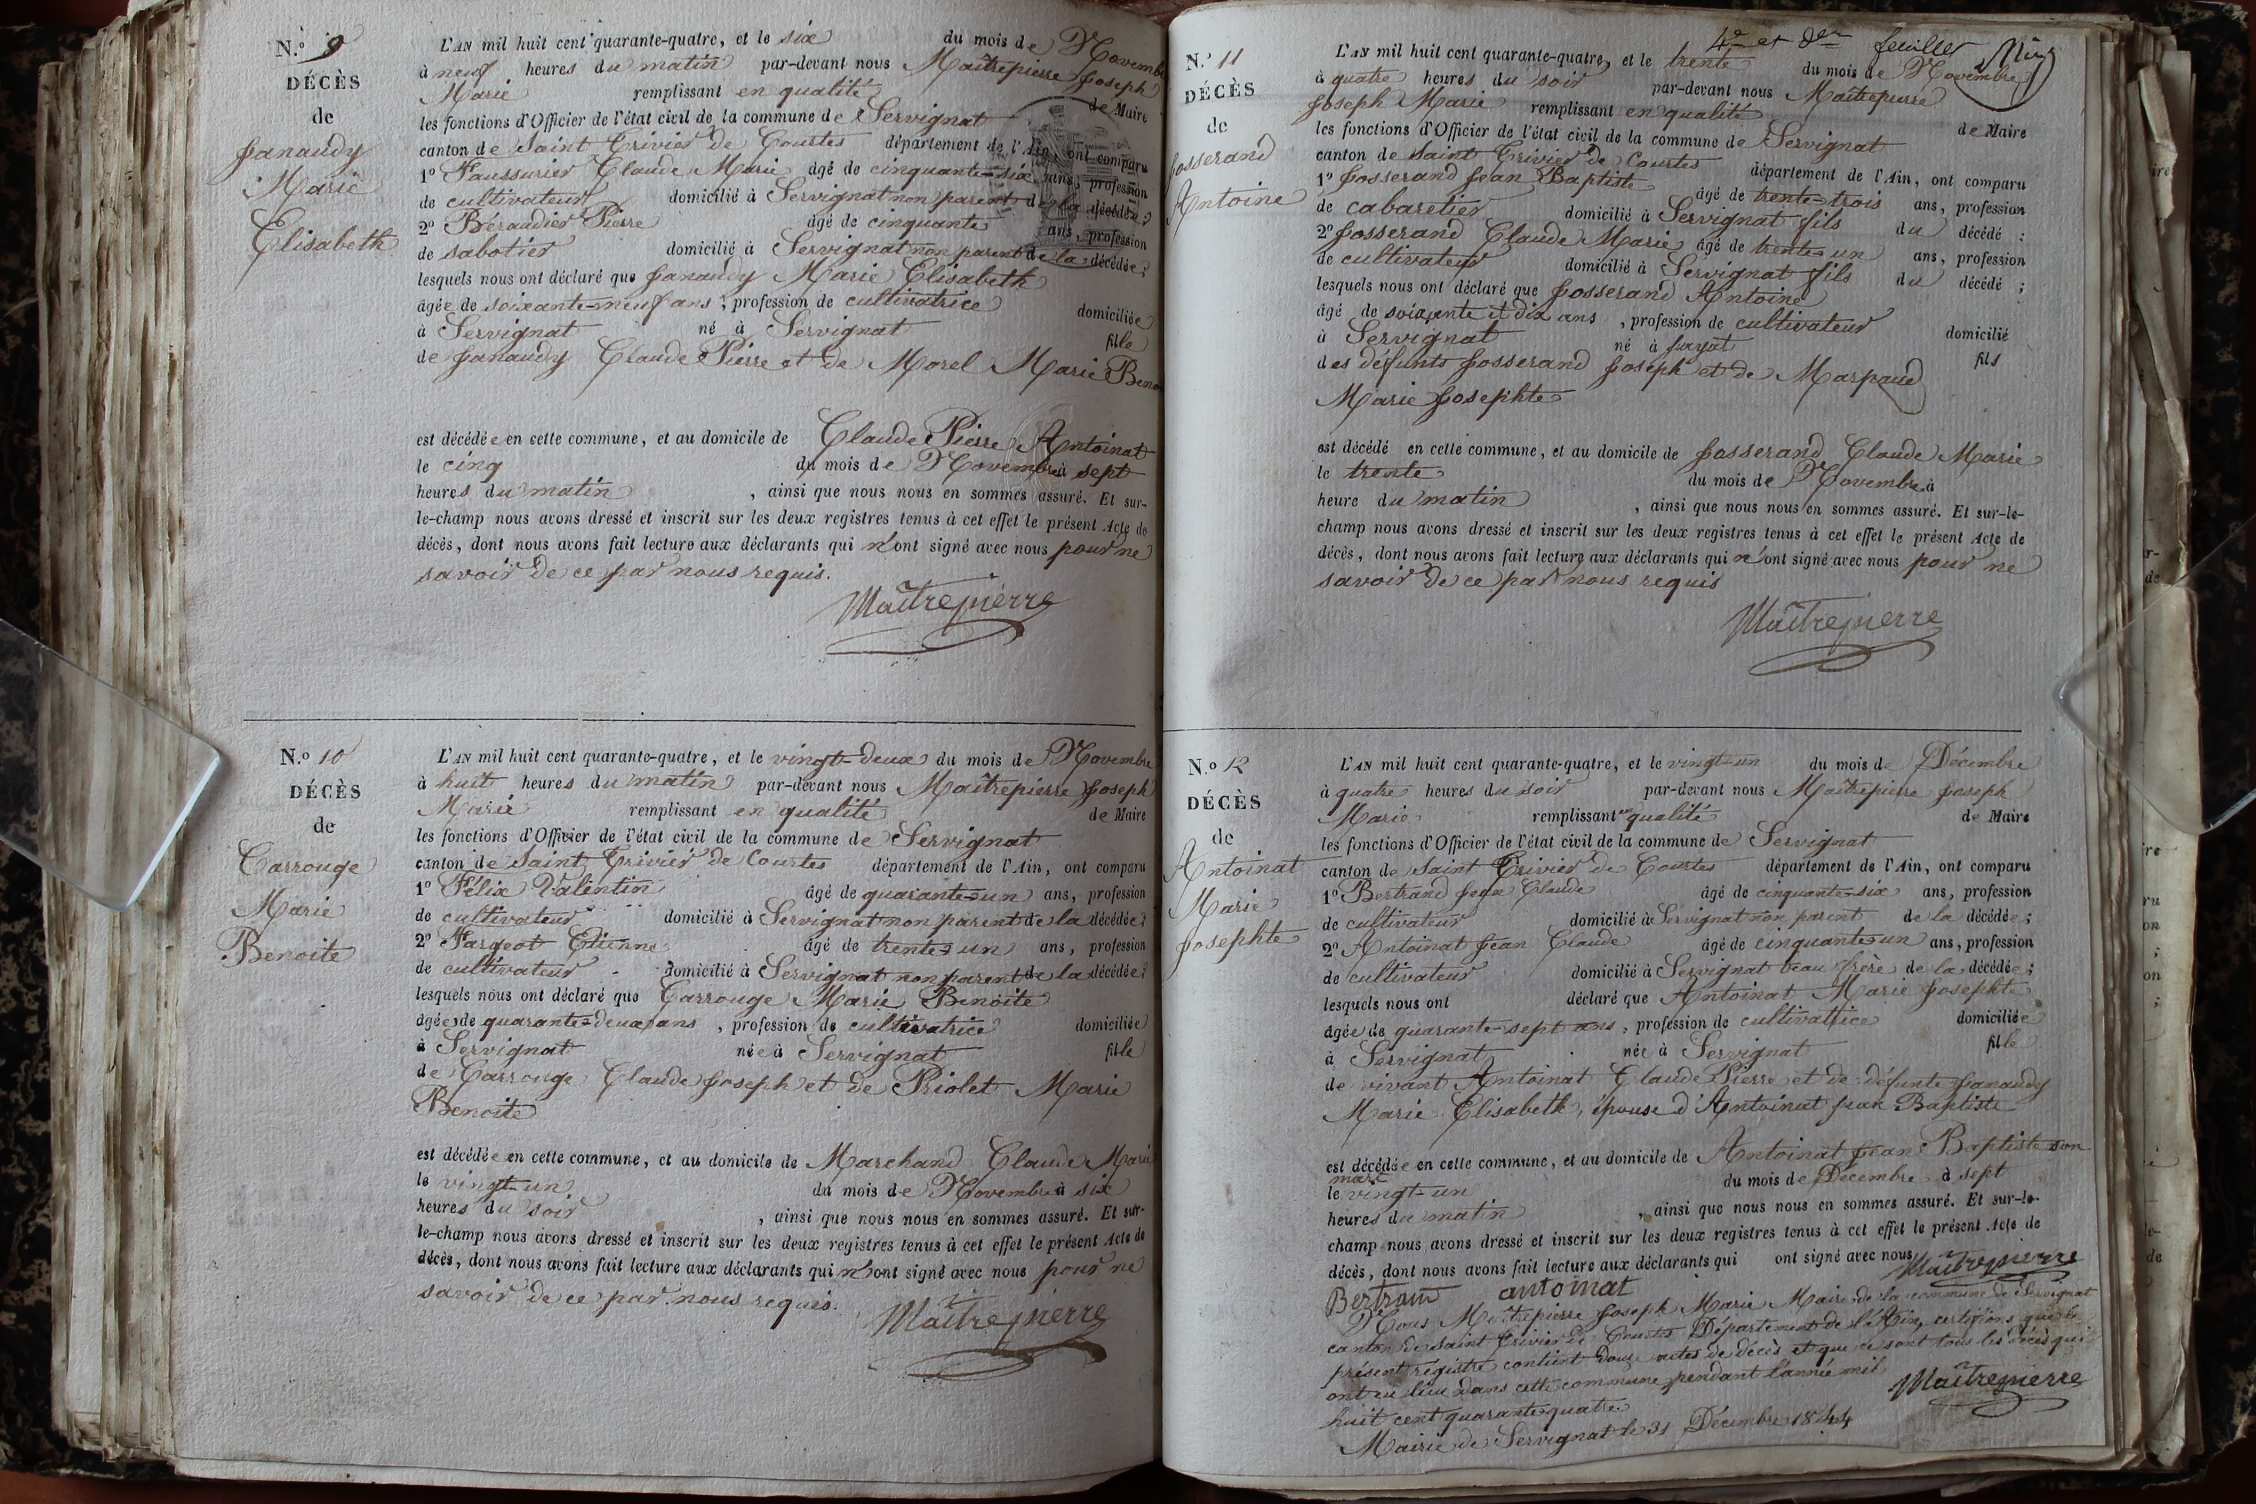 N.o 9
DÉCÈS
de
Janaudy
Marie
Elisabeth
L'AN mil huit cent quarante-quatre, et le six du mois de Novembre
à neuf heures du matin par-devant nous Maîtrepierre Joseph
Marie remplissant en qualité de Maire
les fonctions d'Officier de l'état civil de la commune de Servignat
canton de Saint Trivier de Courtes département de l'Ain, ont comparu
1o Faussurier Claude Marie âgé de cinquante-six ans, profession
de cultivateur domicilié à Servignat non parent de la décédée;
2o Béraudier Pierre âgé de cinquante ans, profession
de sabotier domicilié à Servignat non parent de la décédée;
lesquels nous ont déclaré que Janaudy Marie Elisabeth
âgée de soixante-neuf ans, profession de cultivatrice domiciliée
à Servignat né à Servignat fille
de Janaudy Claude Pierre et de Morel Marie Beno
est décédée en cette commune, et au domicile de Claude Pierre Antoinat
le cinq du mois de Novembre à sept
heures du matin, ainsi que nous nous en sommes assuré. Et sur-
le-champ nous avons dressé et inscrit sur les deux registres tenus à cet effet le présent Acte de
décès, dont nous avons fait lecture aux déclarants qui n'ont signé avec nous pour ne
savoir de ce par nous requis.
Maîtrepierre
N.o 10
DÉCÈS
de
Carrouge
Marie
Benoite
L'AN mil huit cent quarante-quatre, et le vingt-deux du mois de Novembre
à huit heures du matin par-devant nous Maîtrepierre Joseph
Marie remplissant en qualité de Maire
les fonctions d'Officier de l'état civil de la commune de Servignat
canton de Saint Trivier de Courtes département de l'Ain, ont comparu
1o Félix Valentin âgé de quarante-un ans, profession
de cultivateur domicilié à Servignat non parent de la décédée;
2o Fargeot Etienne âgé de trente-un ans, profession
de cultivateur domicilié à Servignat non parent de la décédée;
lesquels nous ont déclaré que Carrouge Marie Benoite
âgée de quarante-deux ans, profession de cultivatrice domiciliée
à Servignat née à Servignat fille
de Carrouge Claude Joseph et de Priolet Marie
Benoite
est décédée en cette commune, et au domicile de Marchand Claude Marie
le vingt-un du mois de Novembre à six
heures du soir, ainsi que nous nous en sommes assuré. Et sur-
le-champ nous avons dressé et inscrit sur les deux registres tenus à cet effet le présent Acte de
décès, dont nous avons fait lecture aux déclarants qui n'ont signé avec nous pour ne
savoir de ce par nous requis.
Maîtrepierre
4e et der feuille
N.o 11
DÉCÈS
de
Josserand
Antoine
L'AN mil huit cent quarante-quatre, et le trente du mois de Novembre
à quatre heures du soir par-devant nous Maîtrepierre
Joseph Marie remplissant en qualité de Maire
les fonctions d'Officier de l'état civil de la commune de Servignat
canton de Saint Trivier de Courtes département de l'Ain, ont comparu
1o Josserand Jean Baptiste âgé de trente-trois ans, profession
de cabaretier domicilié à Servignat fils du décédé;
2o Josserand Claude Marie âgé de trente-un ans, profession
de cultivateur domicilié à Servignat fils du décédé;
lesquels nous ont déclaré que Josserand Antoine
âgé de soixante et dix ans, profession de cultivateur domicilié
à Servignat né à Jayat fils
des défunts Josserand Joseph et de Marpaud
Marie Josephte
est décédé en cette commune, et au domicile de Josserand Claude Marie
le trente du mois de Novembre à
heure du matin, ainsi que nous nous en sommes assuré. Et sur-le-
champ nous avons dressé et inscrit sur les deux registres tenus à cet effet le présent Acte de
décès, dont nous avons fait lecture aux déclarants qui n'ont signé avec nous pour ne
savoir de ce par nous requis
Maîtrepierre
N.o 12
DÉCÈS
de
Antoinat
Marie
Josephte
L'AN mil huit cent quarante-quatre, et le vingt-un du mois de Décembre
à quatre heures du soir par-devant nous Maîtrepierre Joseph
Marie remplissant en qualité de Maire
les fonctions d'Officier de l'état civil de la commune de Servignat
canton de Saint Trivier de Courtes département de l'Ain, ont comparu
1o Bertrand Jean Claude âgé de cinquante-six ans, profession
de cultivateur domicilié à Servignat non parent de la décédée;
2o Antoinat Jean Claude âgé de cinquante-un ans, profession
de cultivateur domicilié à Servignat beau frère de la décédée;
lesquels nous ont déclaré que Antoinat Marie Josephte
âgée de quarante-sept ans, profession de cultivatrice domiciliée
à Servignat née à Servignat fille
de vivant Antoinat Claude Pierre et de défunte Janaudy
Marie Elisabeth, épouse d'Antoinat Jean Baptiste
est décédée en cette commune, et au domicile de Antoinat Jean Baptiste son
mari
le vingt-un du mois de Décembre à sept
heures du matin, ainsi que nous nous en sommes assuré. Et sur-le-
champ nous avons dressé et inscrit sur les deux registres tenus à cet effet le présent Acte de
décès, dont nous avons fait lecture aux déclarants qui ont signé avec nous Maîtrepierre
Bertrand antoinat
Nous Maîtrepierre Joseph Marie Maire de la commune de Servignat
canton de Saint Trivier de Courtes Département de l'Ain, certifions que le
présent régistre contient douze actes de décès et que ce sont tous les décès qui
ont eu lieu dans cette commune pendant l'année mil
huit cent quarante quatre
Maîtrepierre
Mairie de Servignat le 31 Décembre 1844